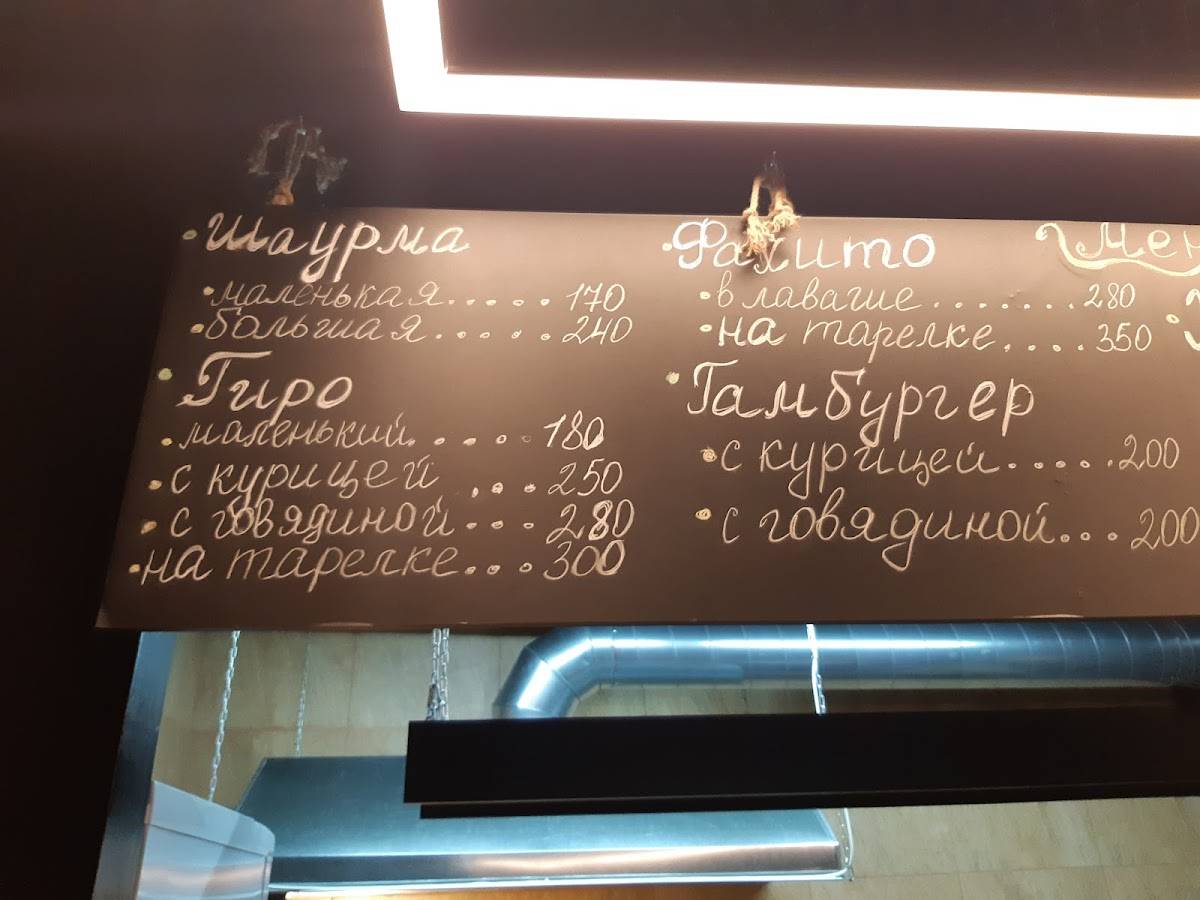 Шаурма
маленькая..... 170
большая...... 240
Гиро
маленький.... 180
с курицей .... 250
с говядиной... 280
на тарелке... 300
Фахито
в лаваше ....... 280
на тарелке.... 350
Гамбургер
с курицей...... 200
с говядиной... 200
Мен